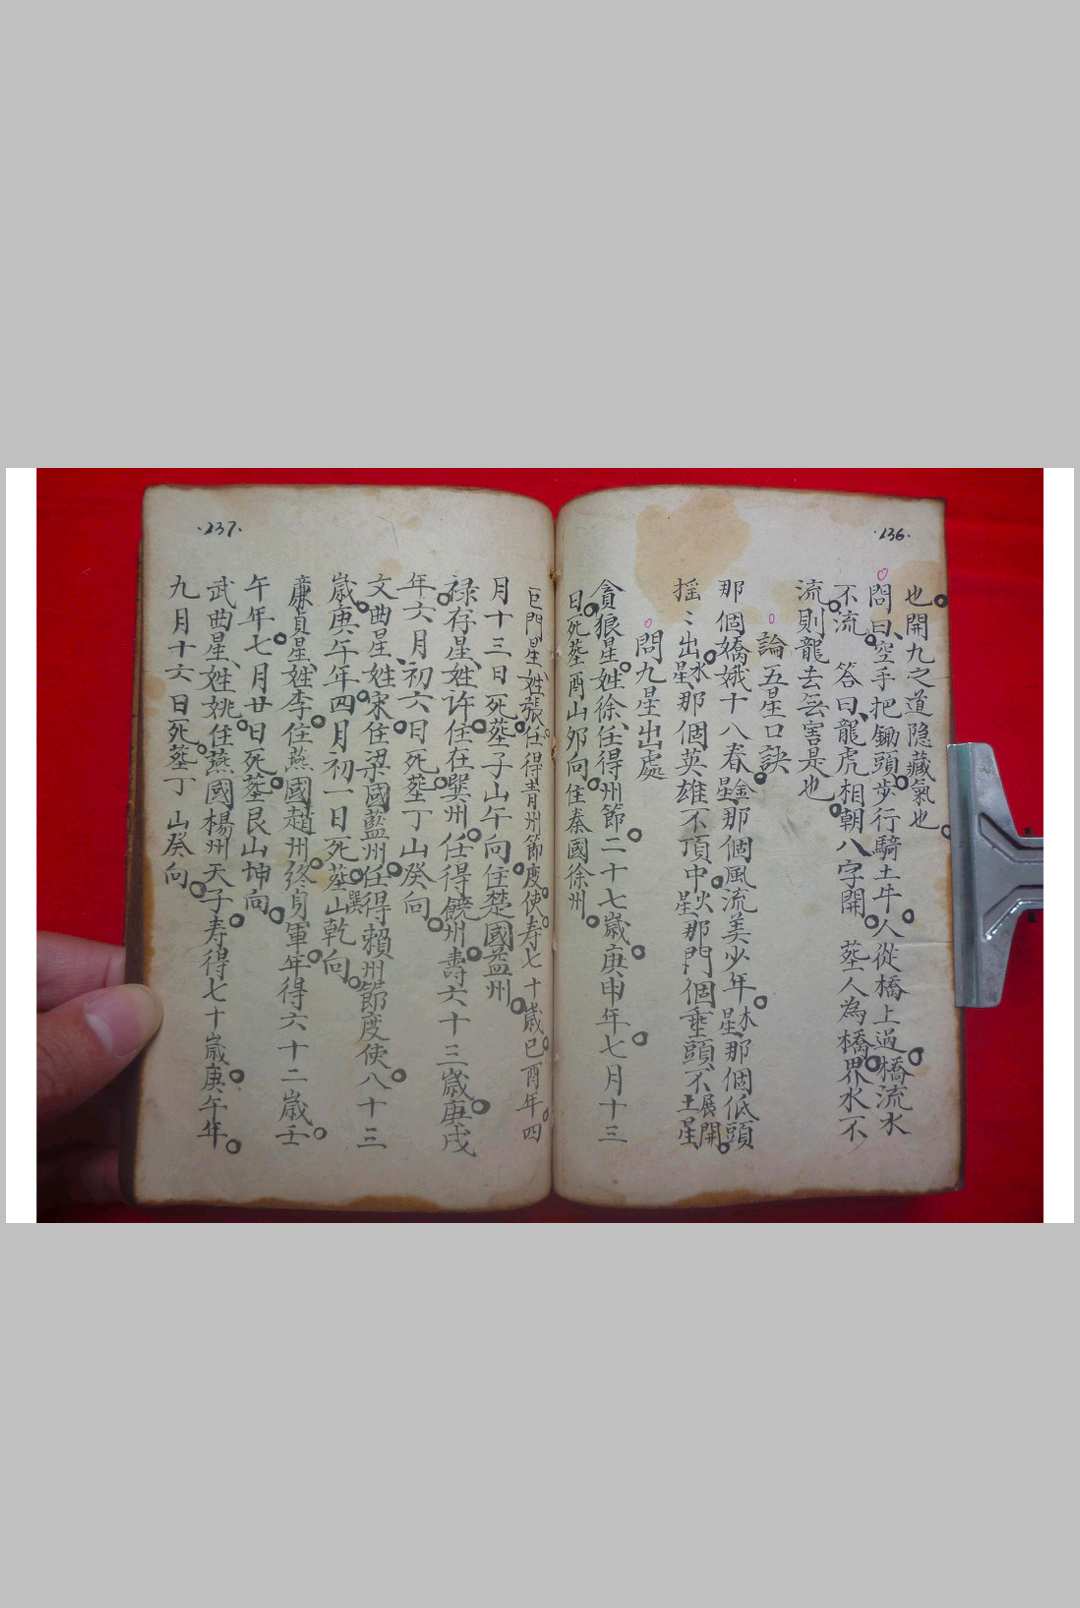 ·136·
也開九之道隐藏氣也
問曰、空手把鋤頭步行騎土牛人從橋上過橋流水
不流 答曰、龍虎相朝八字開 塟人為橋界水不
流則龍去 害是也
論五星口訣
那個嬌娥十八春金星那個風流美少年木星那個低頭
摇〻出水星那個英雄不頂中火星那門個垂頭不展開土星
問九星出處
貪狼星、姓徐、任得州節二十七歲庚申年七月十三
日死塟酉山夘向住秦國徐州
·137·
巨門星、姓張、任得青州節度使寿七十歲巳酉年四
月十三日死塟子山午向住楚國益州
禄存星、姓许住在巽州任得饒州壽六十三歲庚戌
年六月初六日死塟丁山癸向
文曲星、姓宋住梁國藍州任得賴州節度使八十三
歲庚午年四月初一日死塟巽山乾向
廉貞星、姓李住燕國趙州終身軍年得六十二歲壬
午年七月廿日死塟艮山坤向
武曲星、姓姚住燕國楊州天子寿得七十歲庚午年
九月十六日死塟丁山癸向